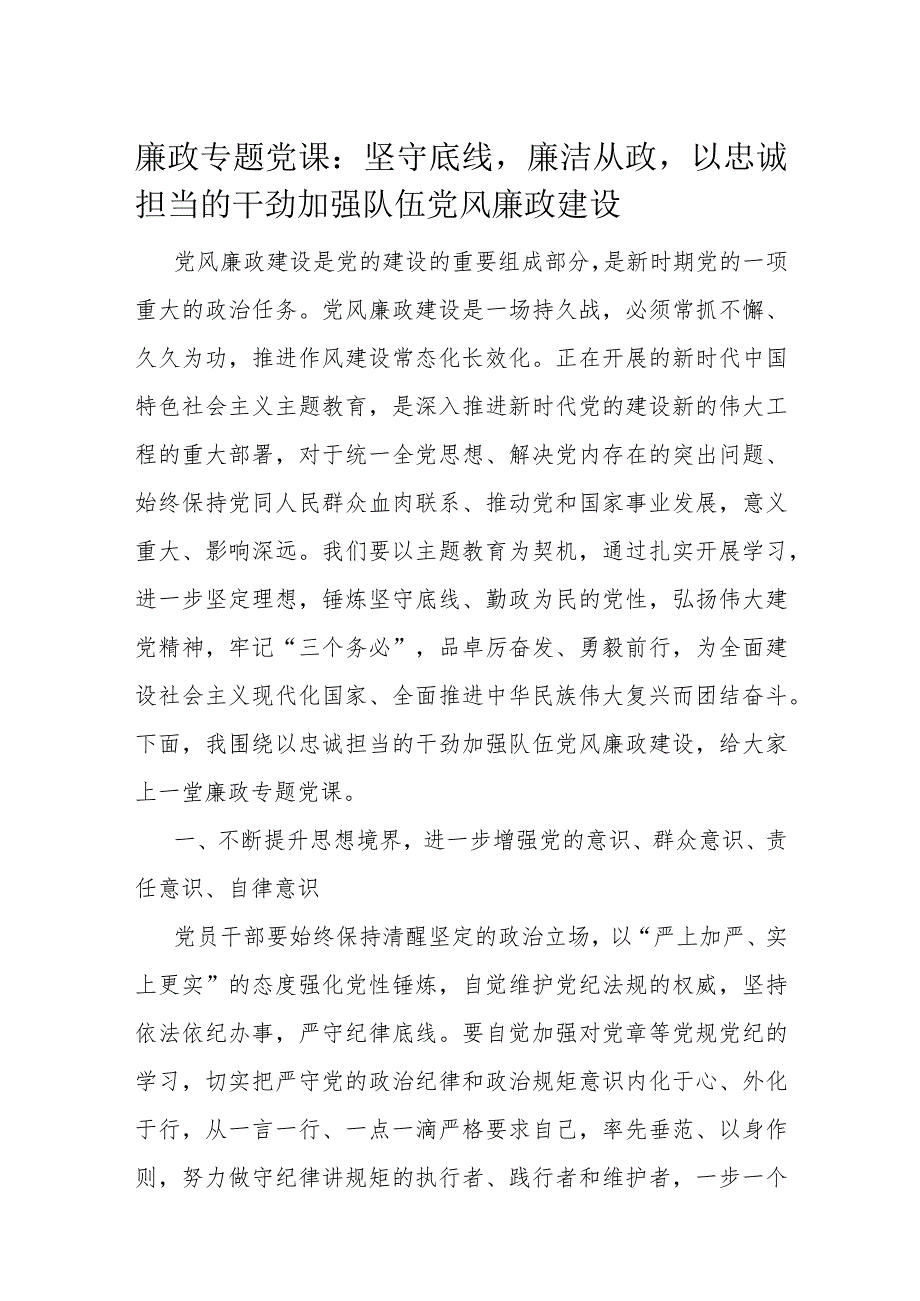 廉政专题党课：坚守底线，廉洁从政，以忠诚
担当的干劲加强队伍党风廉政建设
党风廉政建设是党的建设的重要组成部分，是新时期党的一项
重大的政治任务。党风廉政建设是一场持久战，必须常抓不懈、
久久为功，推进作风建设常态化长效化。正在开展的新时代中国
特色社会主义主题教育，是深入推进新时代党的建设新的伟大工
程的重大部署，对于统一全党思想、解决党内存在的突出问题、
始终保持党同人民群众血肉联系、推动党和国家事业发展，意义
重大、影响深远。我们要以主题教育为契机，通过扎实开展学习，
进一步坚定理想，锤炼坚守底线、勤政为民的党性，弘扬伟大建
党精神，牢记“三个务必”，品卓厉奋发、勇毅前行，为全面建
设社会主义现代化国家、全面推进中华民族伟大复兴而团结奋斗。
下面，我围绕以忠诚担当的干劲加强队伍党风廉政建设，给大家
上一堂廉政专题党课。
一、不断提升思想境界，进一步增强党的意识、群众意识、责
任意识、自律意识
党员干部要始终保持清醒坚定的政治立场，以“严上加严、实
上更实”的态度强化党性锤炼，自觉维护党纪法规的权威，坚持
依法依纪办事，严守纪律底线。要自觉加强对党章等党规党纪的
学习，切实把严守党的政治纪律和政治规矩意识内化于心、外化
于行，从一言一行、一点一滴严格要求自己，率先垂范、以身作
则，努力做守纪律讲规矩的执行者、践行者和维护者，一步一个